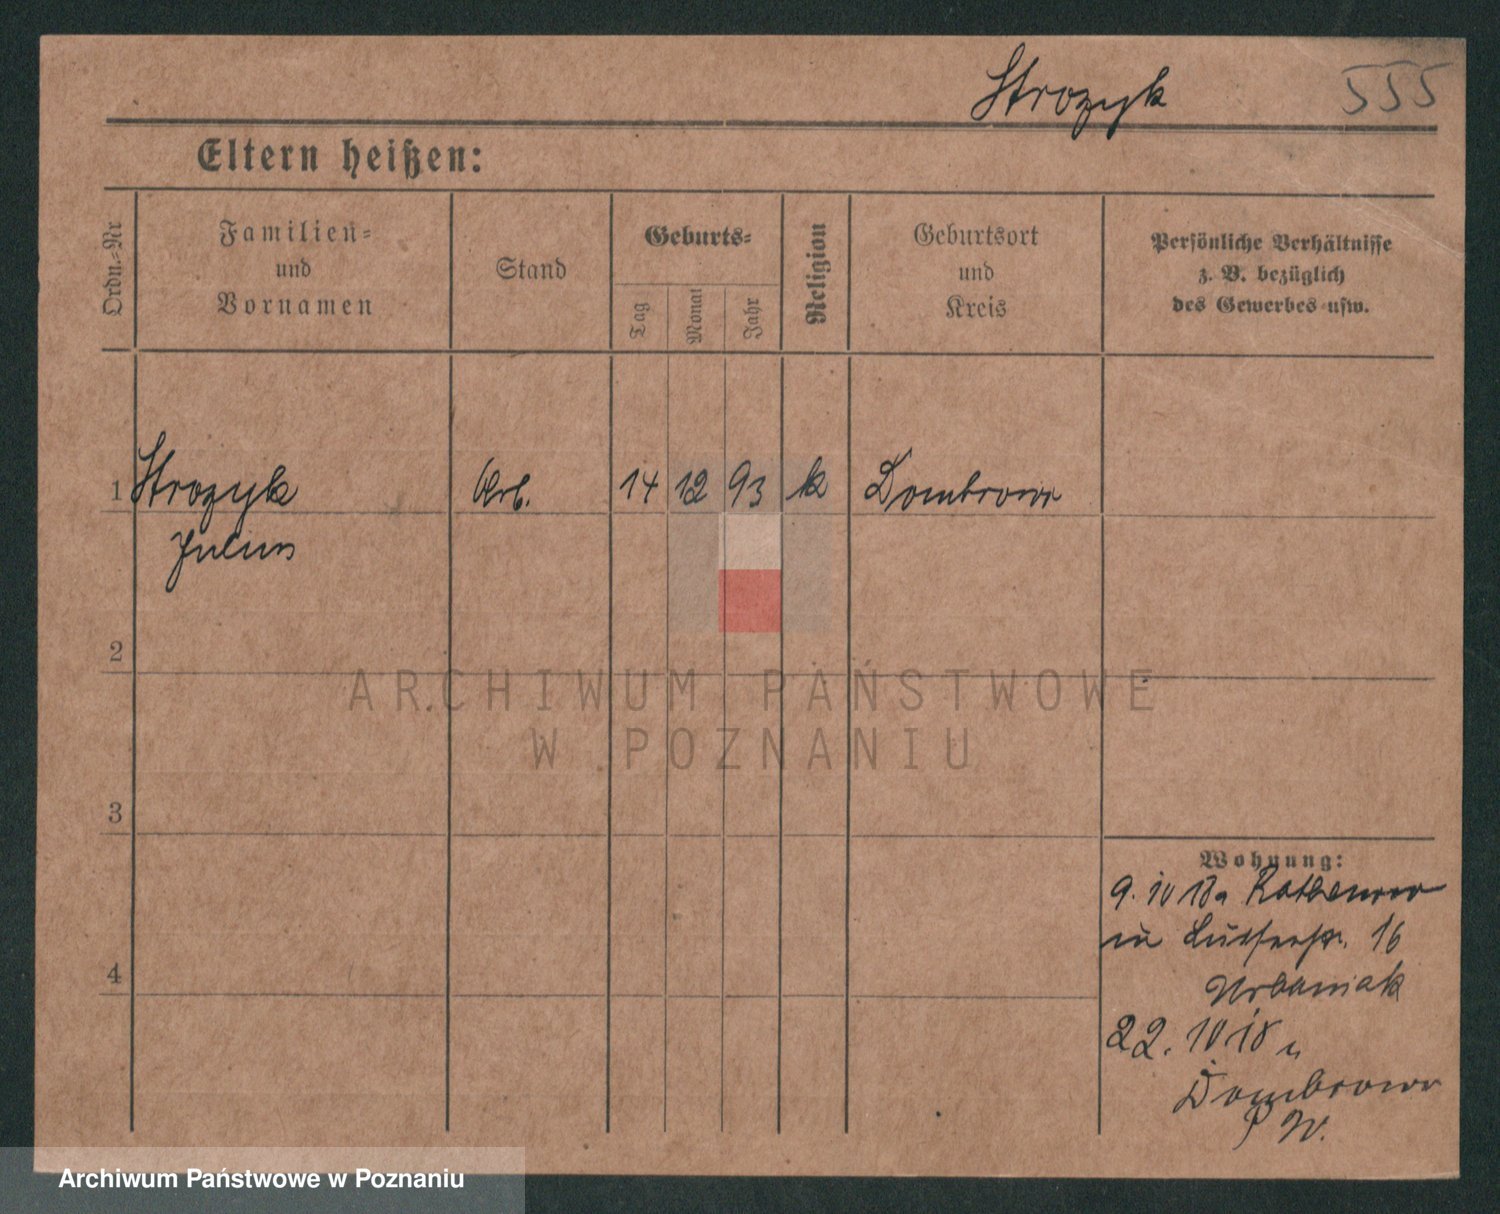 Strozyk 555
Eltern heißen:
Ordn.-Nr
Familien-
und
Vornamen
Stand
Geburts-
Tag
Monat
Jahr
Religion
Geburtsort
und
Kreis
Persönliche Verhältnisse
z. B. bezüglich
des Gewerbes usw.
1 Strozyk Arb. 14 12 93 k Dombrowo
Julius
2
3
4
Wohnung:
9. 10 18 a Rathenow
in Lutherstr. 16
Urbaniak
22. 10 18 n
Dombrowo
P W.
ARCHIWUM PAŃSTWOWE
W POZNANIU
Archiwum Państwowe w Poznaniu